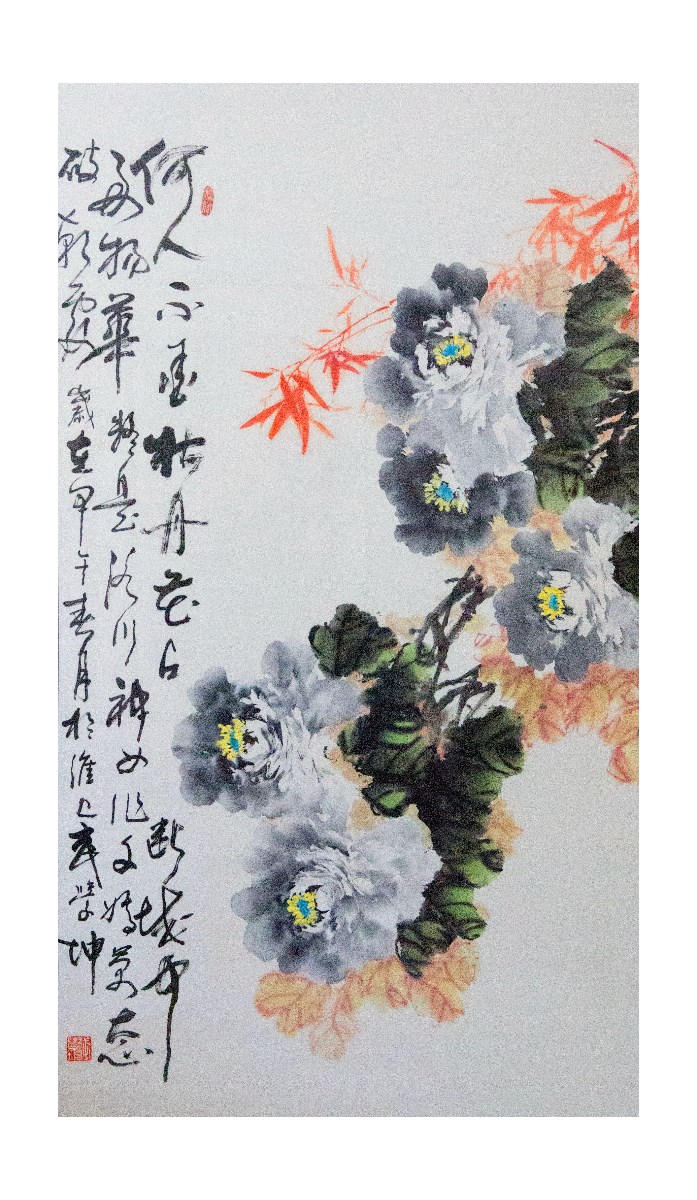 何人不愛牡丹花占断城中
好物華疑是洛川神女作千嬌萬态
破朝霞歲在甲午春月於淮上武坤